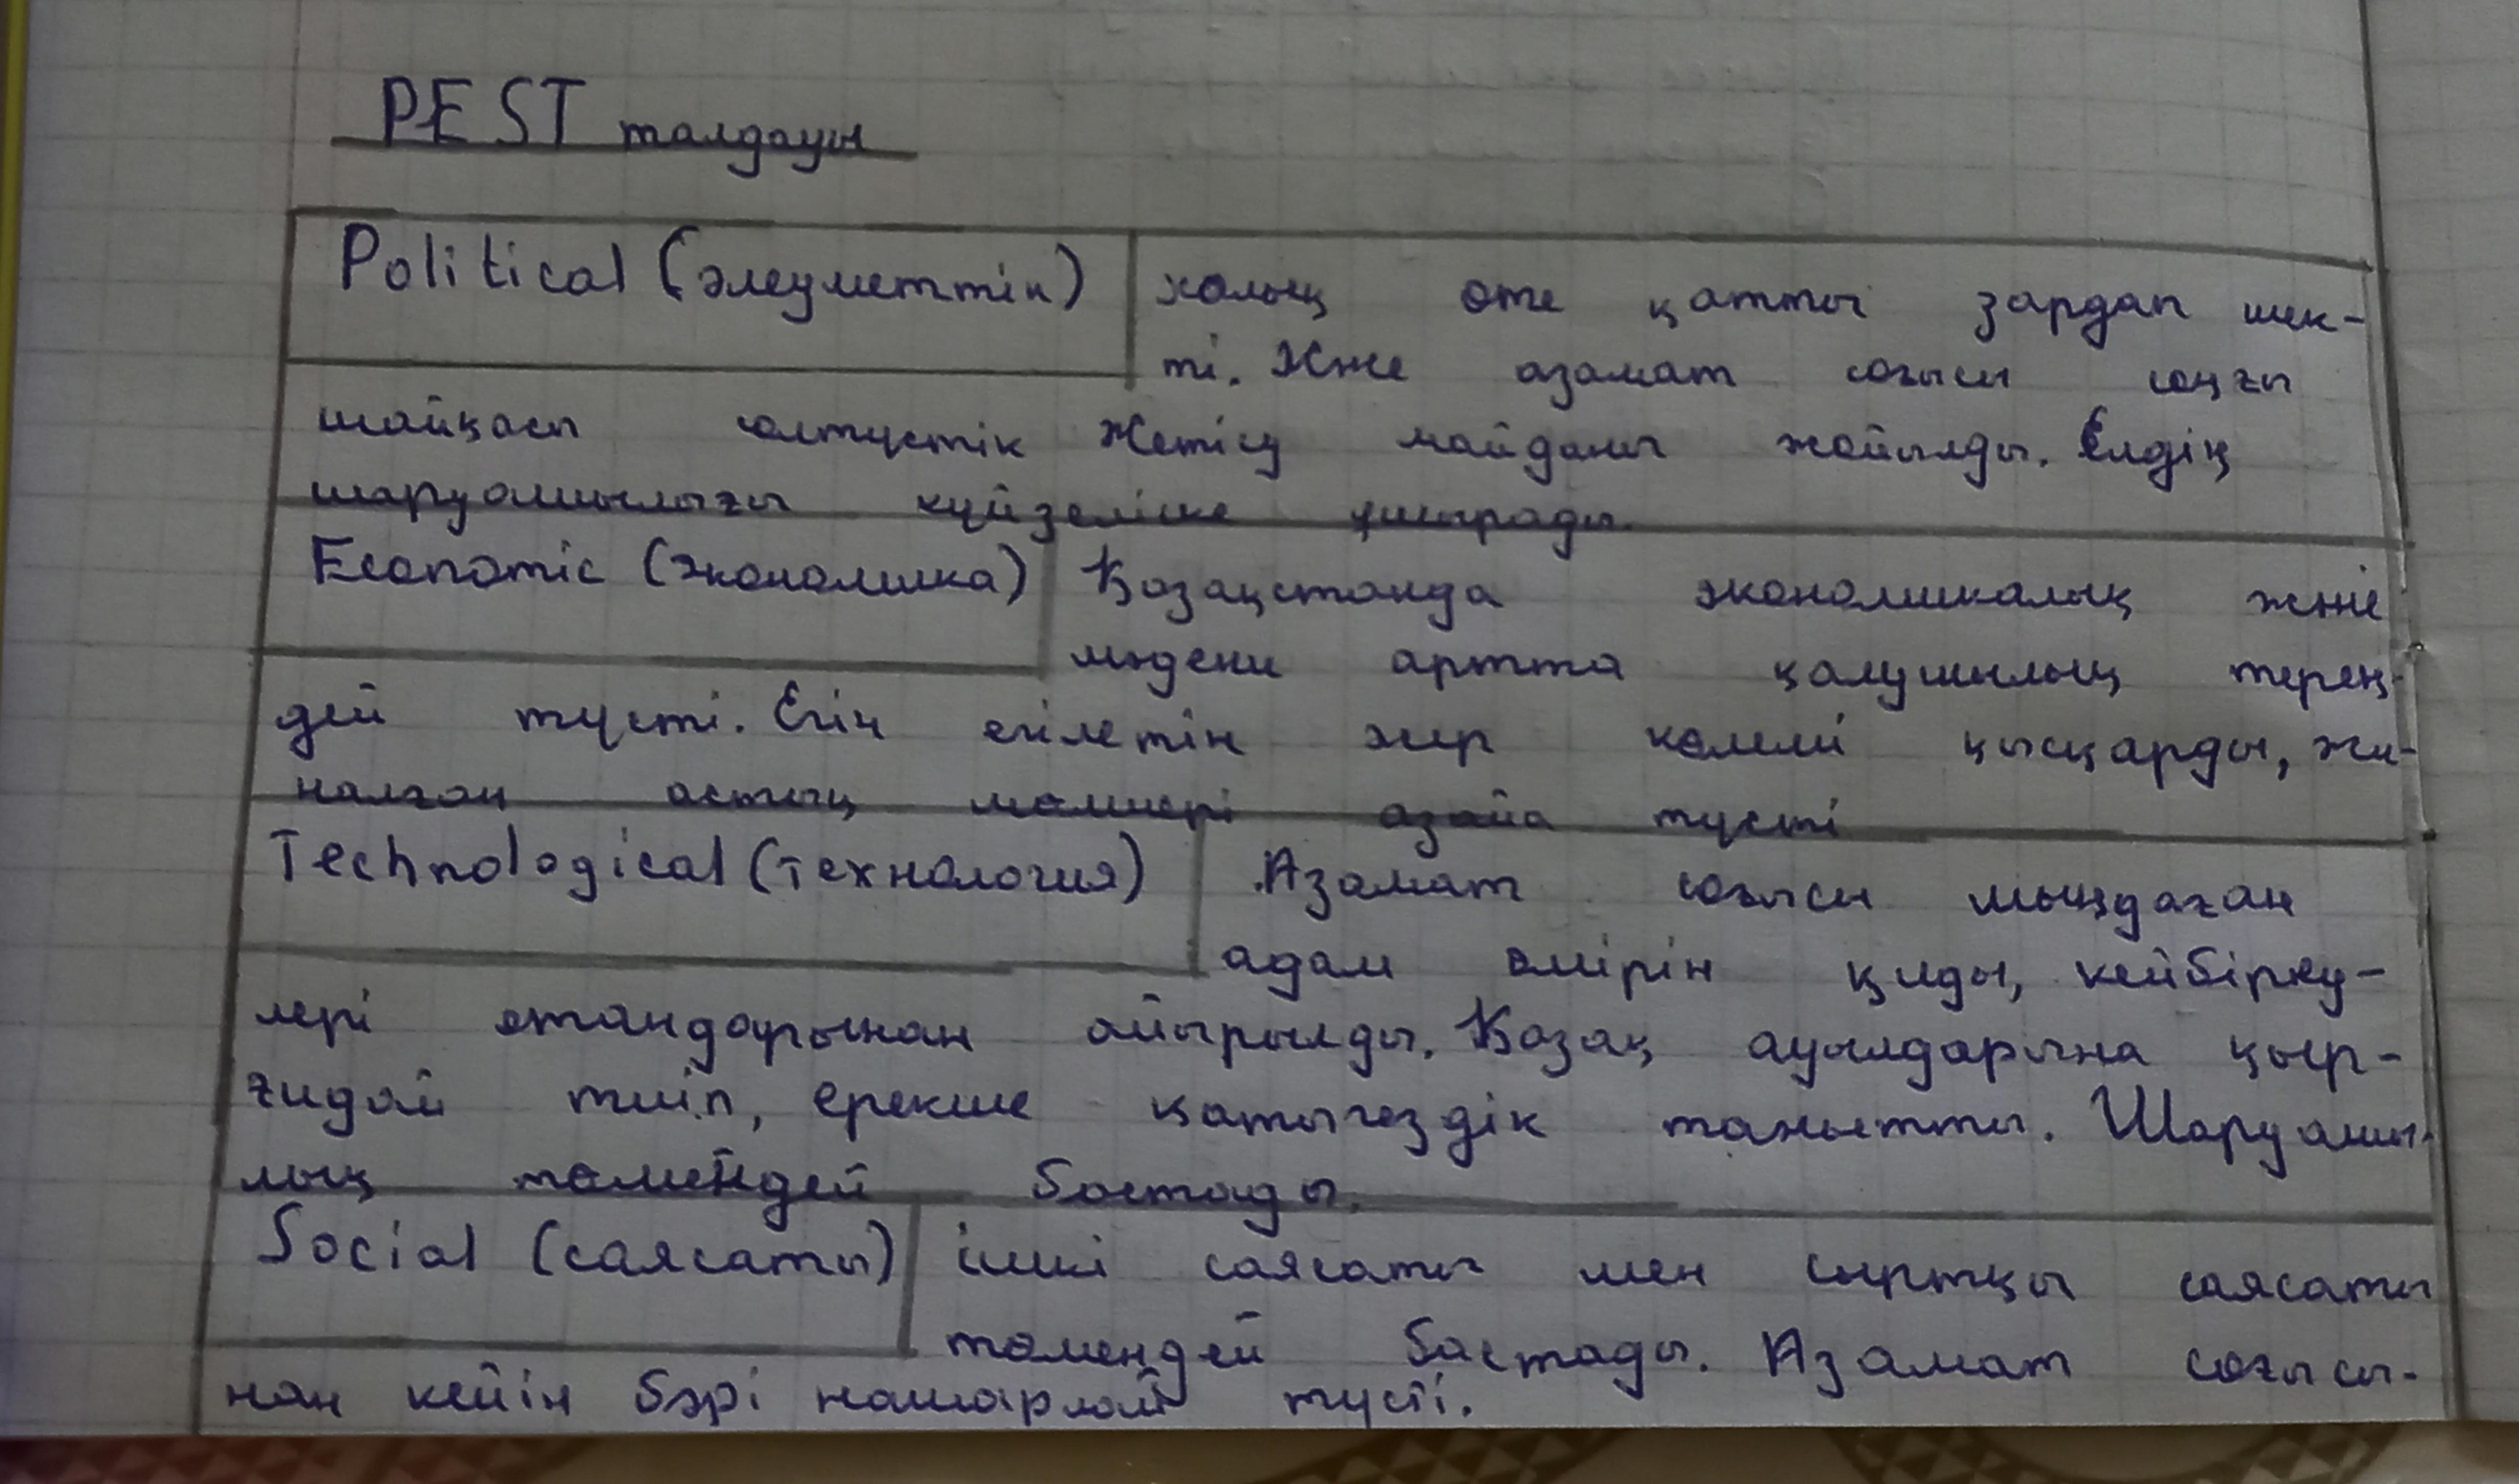 PEST талдауы
Political (әлеуметтік)
халық өте қатты зардап шек-
ті. Және азамат соғысы соңғы
шайқасы солтүстік Жетісу майданы жойылды. Елдің
шаруашылығы күйзеліске ұшырады.
Economic (экономика)
Қазақстанда экономикалық және
мәдени артта қалушылық терең-
дей түсті. Егін егілетін жер көлемі қысқарды, жи-
налған астық мөлшері азая түсті
Technological (технология)
Азамат соғысы мыңдаған
адам өмірін қиды, кейбіреу-
лері отандарынан айырылды. Қазақ ауылдарына қыр-
ғидай тиіп, ерекше қатыгездік танытты. Шаруашы-
лық төмендей бастады.
Social (саясаты)
ішкі саясаты мен сыртқы саясаты
төмендей бастады. Азамат соғысы-
нан кейін бәрі нашарлай түсті.